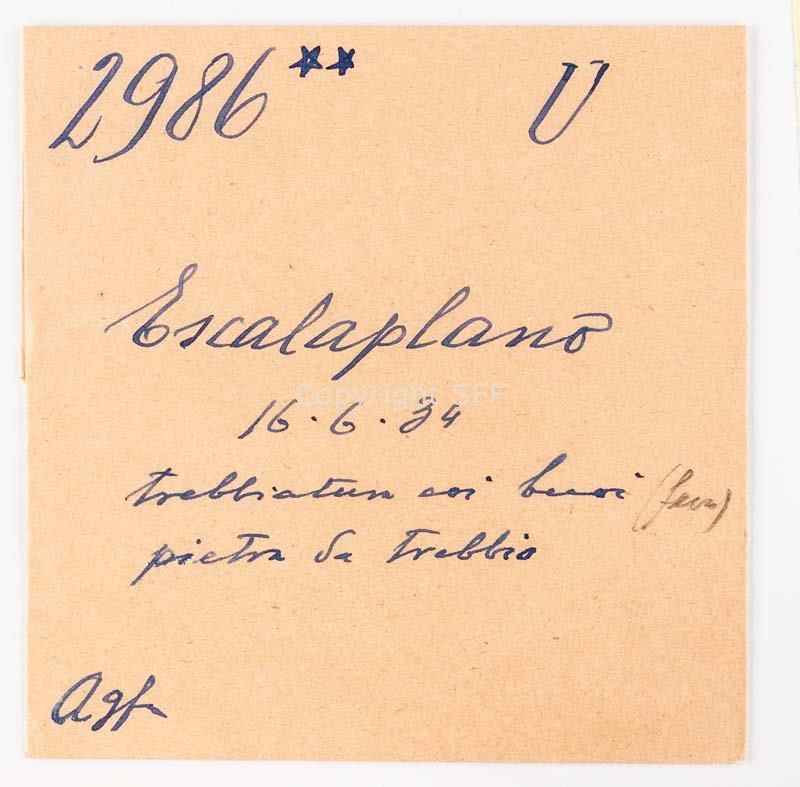 2986** U
Escalaplano
Copyright SFF
16.6.34
trebbiatura coi buoi
pietra da trebbio
Agfa